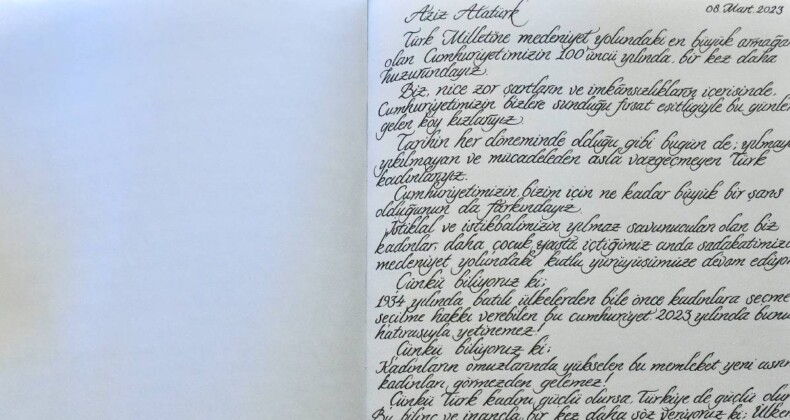 Aziz Atatürk 08. Mart. 2023
Türk Milletine medeniyet yolundaki en büyük armağan
olan Cumhuriyetimizin 100'üncü yılında, bir kez daha
huzurundayız.
Biz, nice zor şartların ve imkânsızlıkların içerisinde,
Cumhuriyetimizin bizlere sunduğu fırsat eşitliğiyle bu günler
gelen köy kızlarıyız.
Tarihin her döneminde olduğu gibi bugün de; yılmaya
yıkılmayan ve mücadeleden asla vazgeçmeyen Türk
kadınlarıyız.
Cumhuriyetimizin bizim için ne kadar büyük bir şans
olduğunun da farkındayız.
İstiklal ve istikbalimizin yılmaz savunucuları olan biz
kadınlar, daha çocuk yaşta içtiğimiz anda sadakatimizl
medeniyet yolundaki kutlu yürüyüşümüze devam ediyor
Çünkü biliyoruz ki;
1934 yılında, batılı ülkelerden bile önce kadınlara seçme
seçilme hakkı verebilen bu cumhuriyet 2023 yılında bunu
hatırasıyla yetinemez!
Çünkü biliyoruz ki;
Kadınların omuzlarında yükselen bu memleket yeni asrın
kadınları görmezden gelemez!
Çünkü Türk kadını güçlü olursa, Türkiye de güçlü olur
Bu bilinç ve inançla bir kez daha söz veriyoruz ki; Ülken